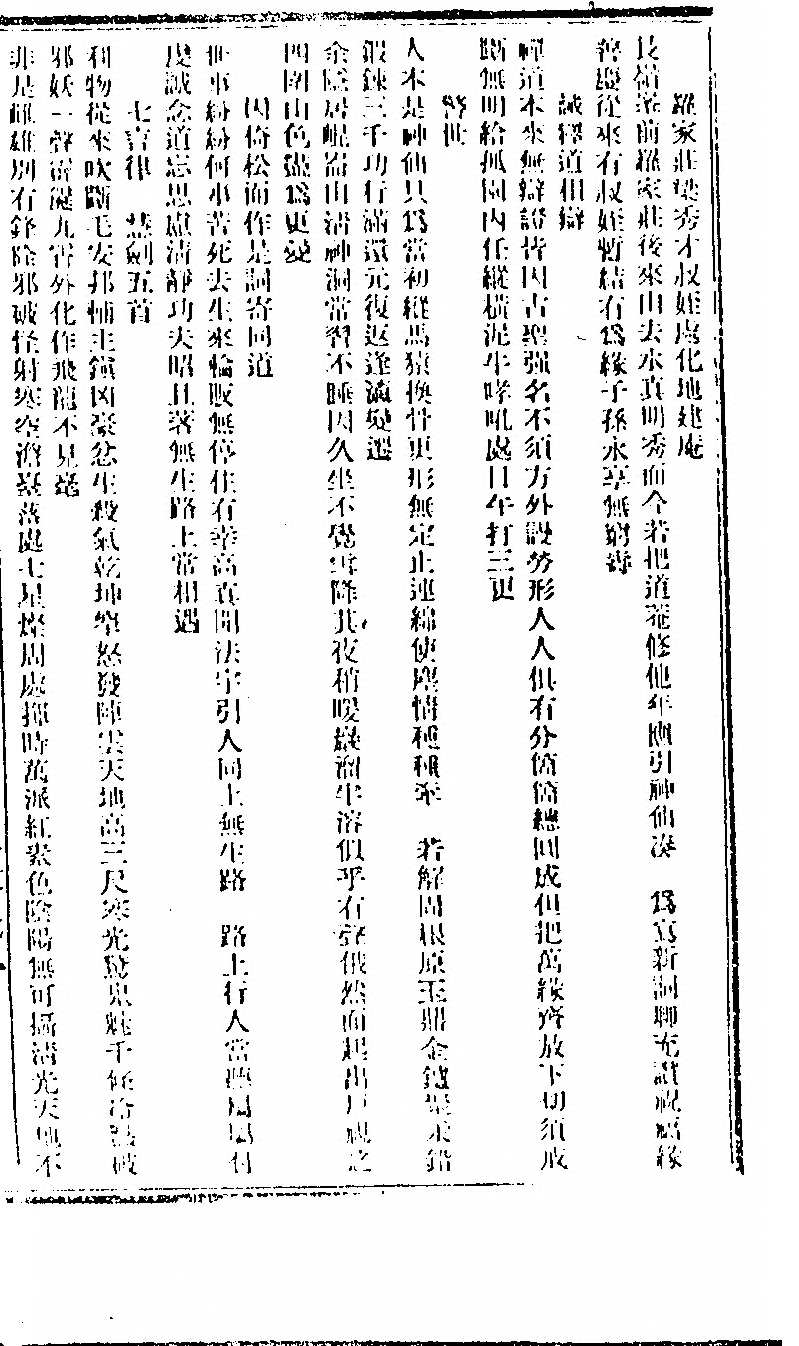 羅家莊梁秀才叔姪處化地建庵
長嶺崇前羅家莊後來山去水真明秀而今若把道菴修他年應引神仙湊　為寫新詞聊充讚祝福緣
善慶從來有叔姪暫結有為緣子孫永享無窮壽
誡釋道相辯
禪道本來無辯證皆因古聖強名不須方外設勞形人人俱有分箇箇總圓成但把萬緣齊放下切須戒
斷無明給孤園內任縱橫泥牛哮吼處日午打三更
警世
人本是神仙只為當初縱馬猿換骨更形無定止連綿使塵情種種牽　若解固根原玉鼎金爐汞鉛
鍛鍊三千功行滿還元復返逢瀛變遷
余隱居崐崙山清神洞當習不睡因久坐不覺雪降其夜稍暖巖溜半溶似乎有聲俄然而起出戶視之
四圍山色盡為更變
因倚松而作是詞寄同道
世事紛紛何事苦死去生來輪販無停住有幸高真開法宇引人同上無生路　路上行人當聽囑囑付
虔誠念道忘思慮清靜功夫昭且著無生路上常相遇
七言律　慧劍五首
利物從來吹斷毛安邦輔主鎮凶豪忿生殺氣乾坤窄怒發陣雲天地高三尺寒光驚鬼魅千條冷燄破
邪妖一聲雷震九霄外化作飛龍不見毫
非是雌雄別有鋒除邪破怪射寒空澹臺落處七星燦周處揮時萬派紅素色陰陽無可攝清光天地不